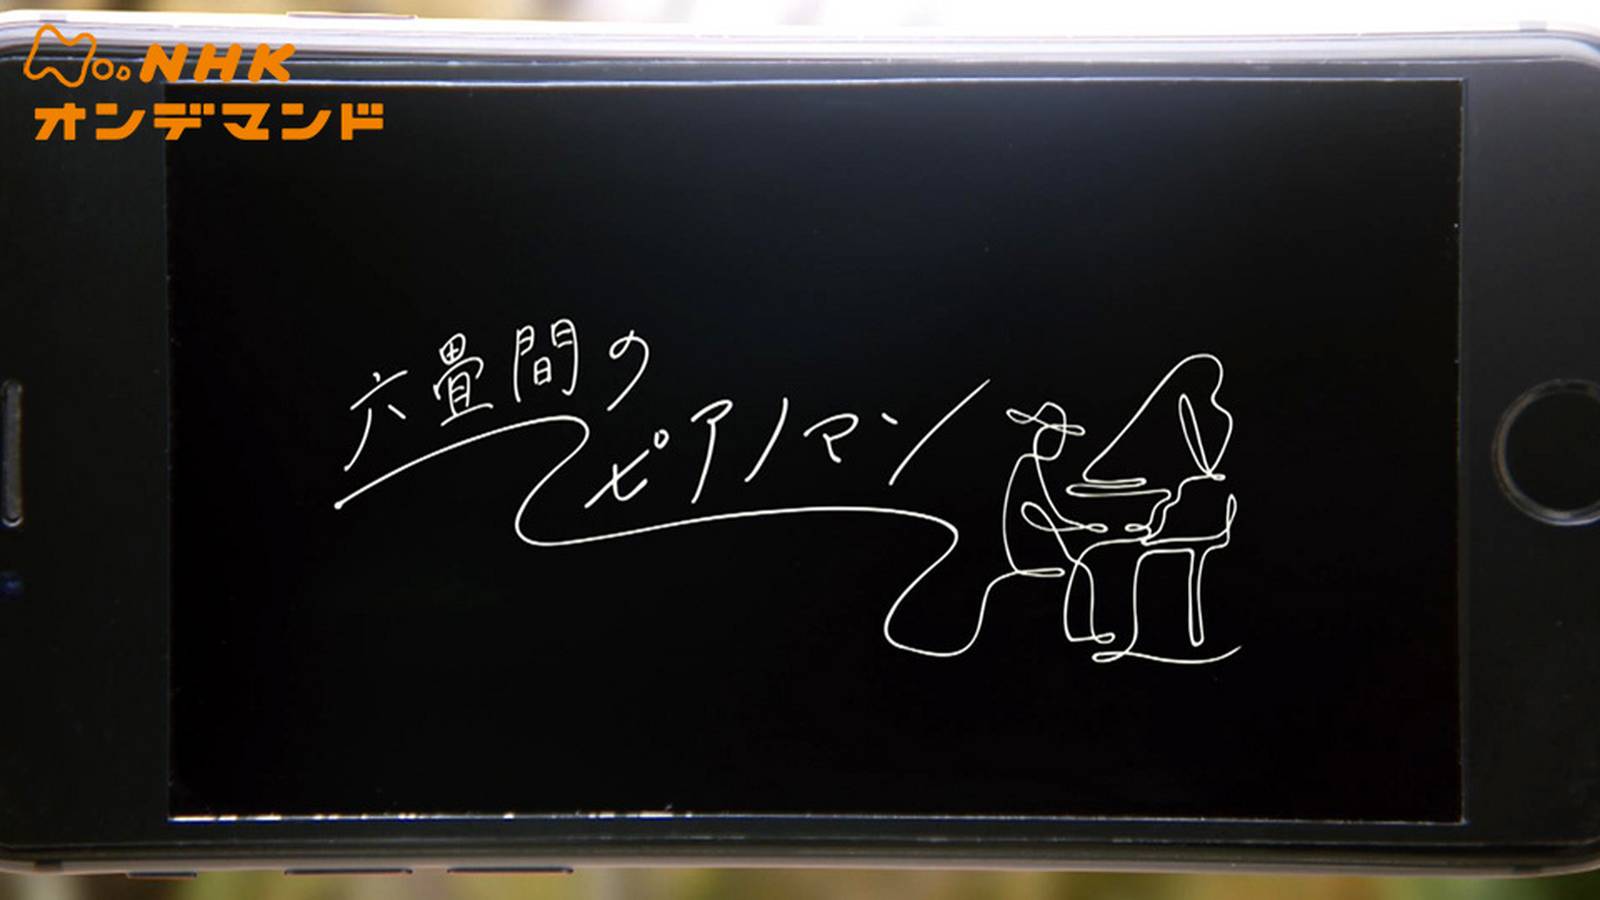 NHK
オンデマンド
六畳間の
ピアノマン